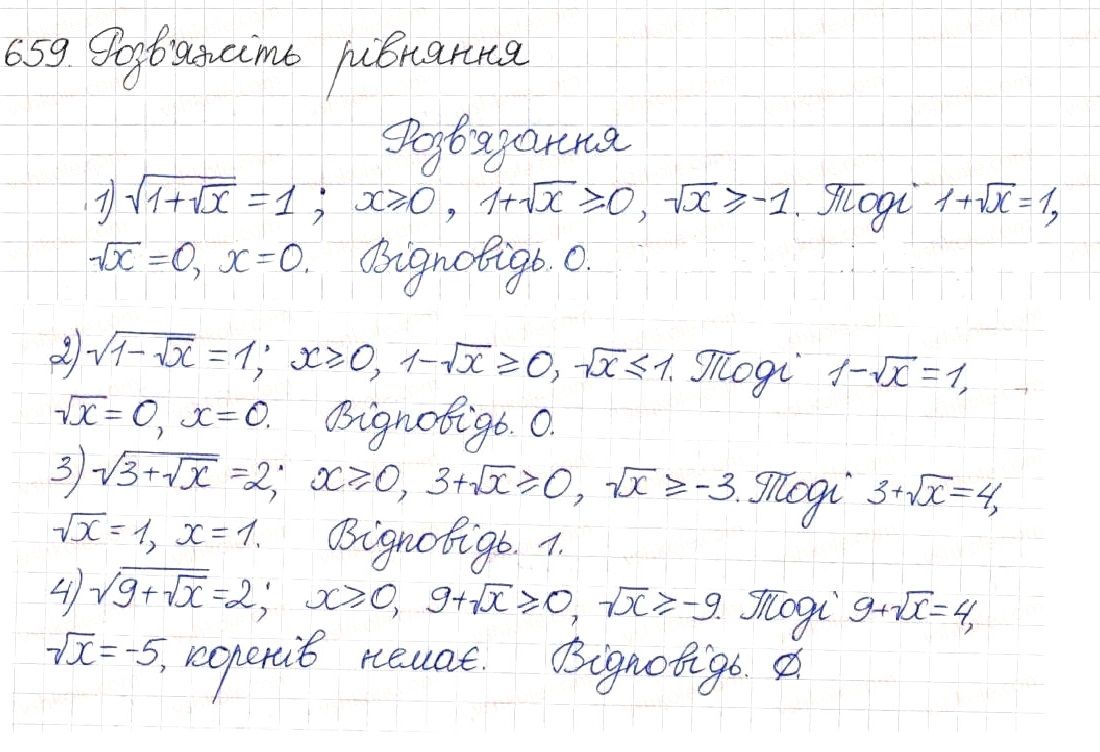 659. Розв'яжіть рівняння
Розв'язання
1) √(1+√x) = 1; x≥0, 1+√x ≥0, √x ≥-1. Тоді 1+√x=1,
√x =0, x=0. Відповідь. 0.
2) √(1-√x) = 1; x≥0, 1-√x ≥0, √x ≤1. Тоді 1-√x =1,
√x = 0, x=0. Відповідь. 0.
3) √(3+√x) =2; x≥0, 3+√x ≥0, √x ≥-3. Тоді 3+√x=4,
√x =1, x=1. Відповідь. 1.
4) √(9+√x)=2; x≥0, 9+√x ≥0, √x ≥-9. Тоді 9+√x=4,
√x =-5, коренів немає. Відповідь. ∅.